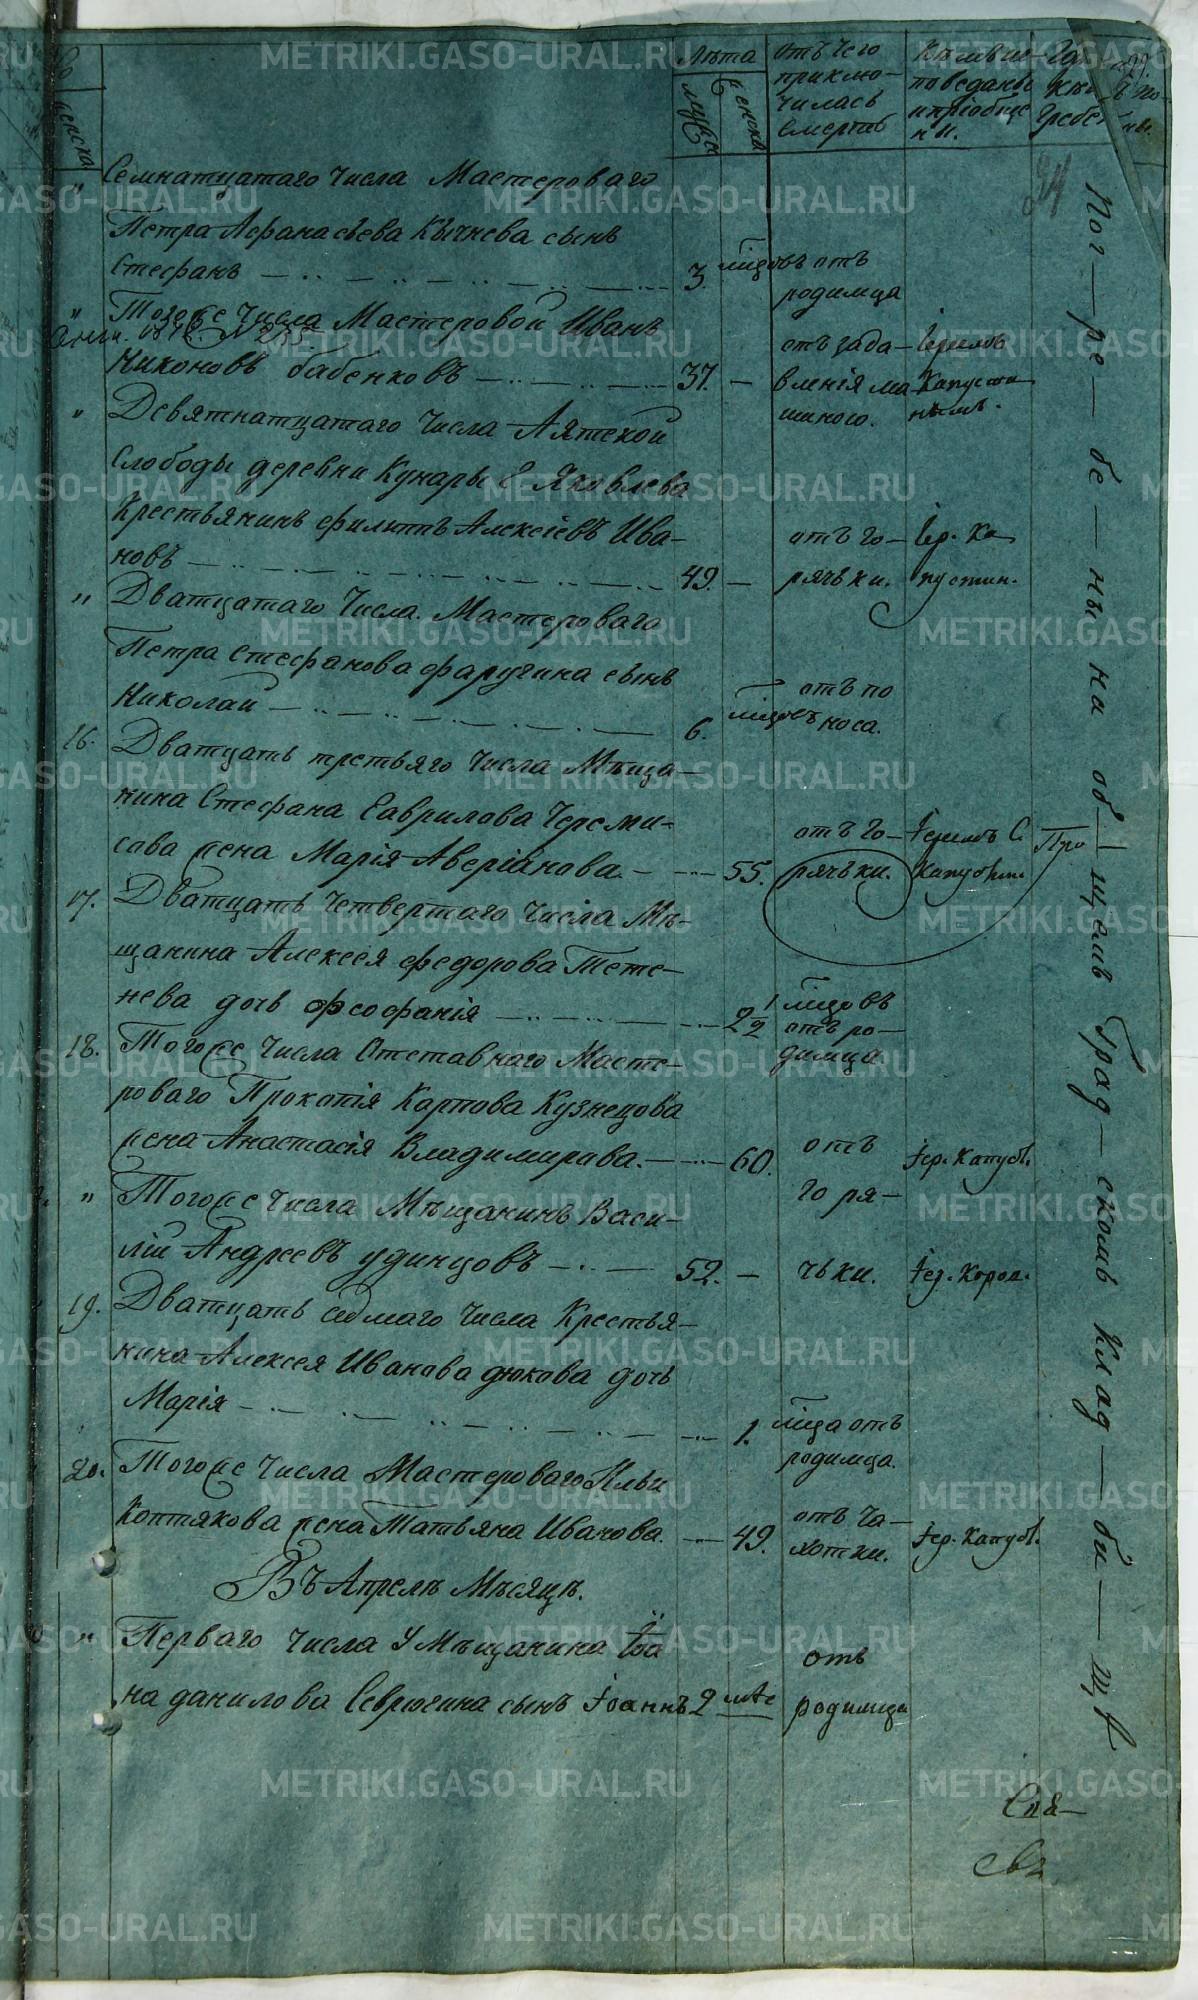 Лѣта
отъ чего приклю-
чилась смерть
мужеска
женска
Семнатцатаго Числа Мастероваго
Петра Афанасьева Кычнева сынъ
Стефанъ 3. мѣсецовъ отъ
родимца
Того же Числа Мастеровой Иванъ
Никоновъ бабенковъ 37. отъ зада-
вленія ма-
шиною.
Іереемъ
Капусти-
нымъ.
Девятнатцатаго Числа Аятской
Слободы деревни Кунары Яковлева
Крестьянинъ филиппъ Алексіевъ Ива-
новъ 49. отъ го-
рячьки.
Іер. Ка
пустин.
Дватцатаго Числа. Мастероваго
Петра Стефанова фаругина сынъ
Николай 6. отъ по
носа.
16. Дватцать третьяго Числа Мѣща-
нина Стефана Гаврилова Череми-
сова жена Марія Аверіанова. 55. отъ го-
рячьки.
Іереемъ С.
17. Дватцать Четвертаго Числа Мѣ-
щанина Алексея федорова Тете-
нева дочь феофанія 2 1/2 отъ ро-
димца
18. Того же Числа Отставнаго Масте-
роваго Прокопія Карпова Кузнецова
жена Анастасія Владимирова. 60. отъ
го ря-
Іер. Капуст.
Того же Числа Мѣщанинъ Васи-
лій Андреевъ удинцовъ 52. чьки. Іер. Корол.
19. Дватцать седмаго Числа Крестья-
нина Алексея Иванова дюкова дочь
Марія 1. мѣсеца отъ
родимца.
20. Того же Числа Мастероваго Ильи
Коптякова жена Татьяна Иванова. 49. отъ ча-
хотки.
Іер. Капуст.
Въ Апрелѣ Мѣсяцѣ.
Перваго Числа У Мѣщанина Іоа
на данилова Севрюгина сынъ Іоаннъ 2 отъ
родимца
Пог-ре-бе-ны на об-щемъ Град-скомъ Клад-би-щѣ
METRIKI.GASO-URAL.RU